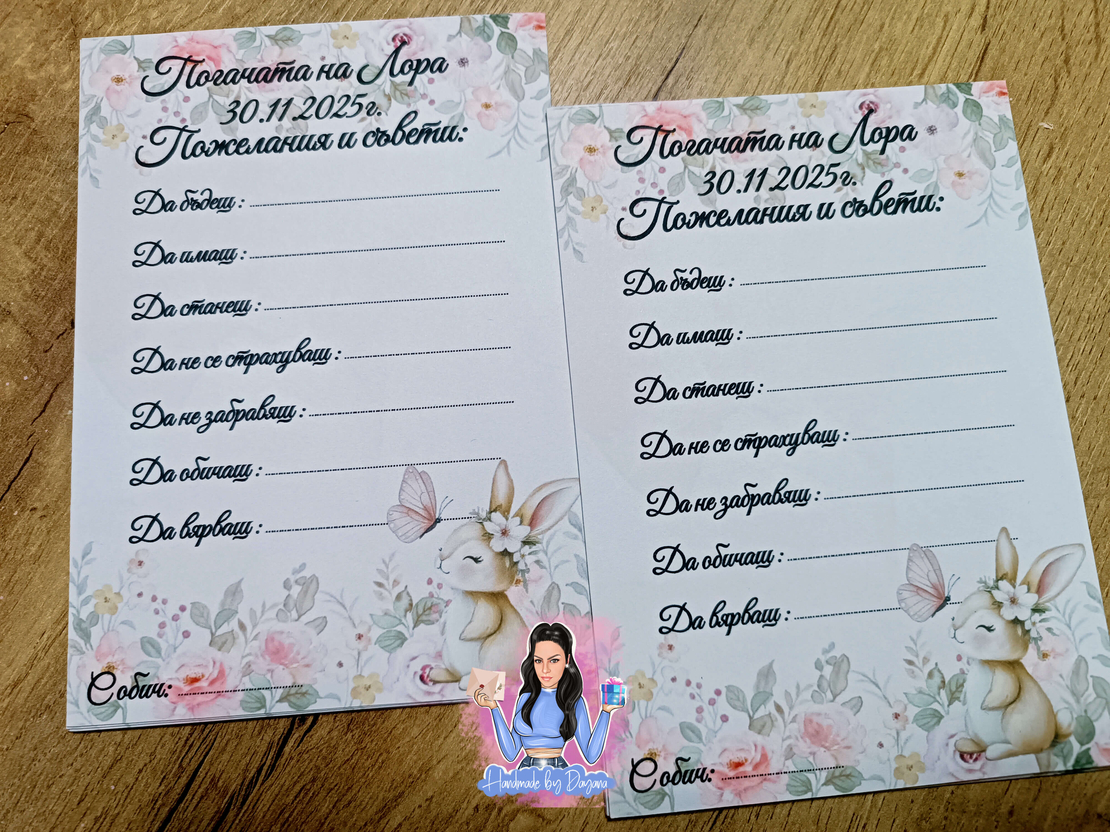 Погачата на Лора
30.11.2025г.
Пожелания и съвети:
Да бъдеш :
Да имаш :
Да станеш :
Да не се страхуваш :
Да не забравяш :
Да обичаш :
Да вярваш :
С обич:
Погачата на Лора
30.11.2025г.
Пожелания и съвети:
Да бъдеш :
Да имаш :
Да станеш :
Да не се страхуваш :
Да не забравяш :
Да обичаш :
Да вярваш :
С обич:
Handmade by Dayana